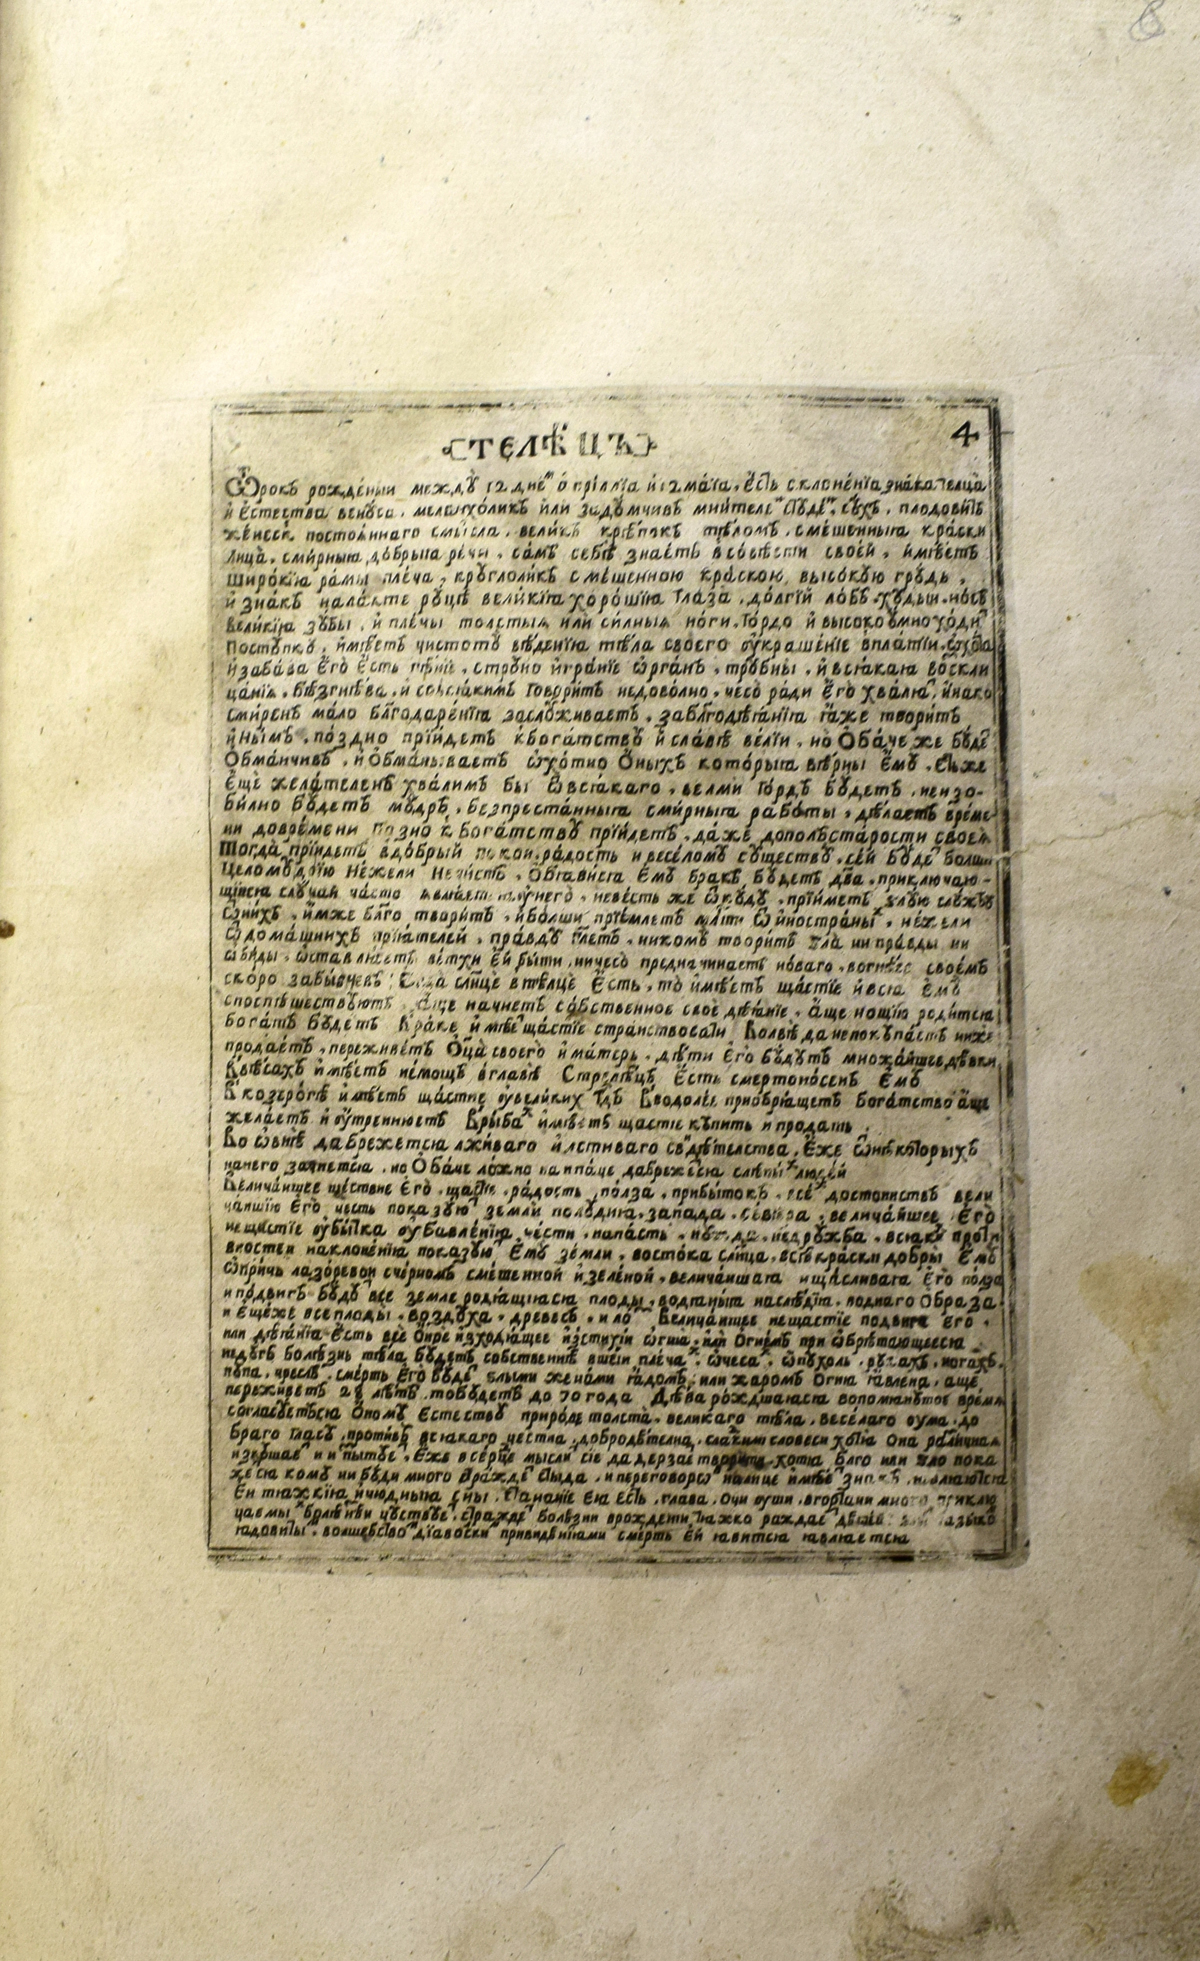 6
ТЕЛѢЦЪ
4
Ѿрокъ рождéныи междꙋ 12 дне апрїллїа и 12 маїа, єсть склонéнїа знака телца
и єстества венꙋса, меланхоликъ или задꙋмчивъ мнителе стꙋде, сꙋхъ, плодовитъ
женескъ постояннаго смысла, великъ крѣпокъ тѣломъ, смѣшенныꙗ краски
лица, смирныꙗ добрыꙗ речи, самъ себѣ знаетъ в совѣсти своей, имѣетъ
широкїꙗ рамы плеча, крꙋглоликъ смѣшенною краскою, высокꙋю грꙋдь,
и знакъ на лакте рꙋцѣ великїꙗ хорошїꙗ глаза, долгїй лобъ, хꙋдыи носъ
великїꙗ зꙋбы, и плечы толстыꙗ или силныꙗ ноги. гордо и высокоꙋмно ходи
постꙋпкꙋ, имѣетъ чистотꙋ вѣденїꙗ тѣла своего ѹкрашенїе в платїи,
и забава єго єсть пѣнїе, стрꙋно игранїе ѡрганъ, трꙋбны, и всꙗкаꙗ воскли
цанїꙗ, безгнѣва, и совсꙗкимъ говоритъ недоволно, чесо ради єго хвалю, инако
смиренъ мало благодаренїꙗ заслꙋживаетъ, за блгодѣꙗнїꙗ ꙗже творитъ
инымъ, поздно прїидетъ к богатствꙋ и славѣ велїи, но обаче же бꙋде
обманчивъ, и обманываетъ ѡхотно оныхъ которыꙗ вѣрны ємꙋ,
єще желателенъ хвалимъ бы ѿ всꙗкаго, велми гордъ бꙋдетъ, неизо-
билно бꙋдетъ мꙋдръ, безпрестанныꙗ смирныꙗ работы, дѣлаетъ време
ни до времени позно к богатствꙋ прїидетъ, даже до полъ старости своеꙗ
тогда прїидетъ в добрый покои, радость и веселомꙋ сꙋществꙋ, сей бꙋде болши
целомꙋдрїю нежели нечистъ, ѡбꙗвисꙗ ємꙋ бракъ, бꙋдетъ два, приключаю-
щїисꙗ слꙋчаи часто, невесть же ѿкꙋдꙋ, прїиметъ злꙋю слꙋжбꙋ
ѿ нихъ, имже блго творитъ, и болши прїемлетъ ѿ иностраны, нежели
ѿ домашнихъ прїꙗтелей, правдꙋ глетъ, никомꙋ творитъ зла ни правды ни
ѡбиды, ѡставлꙗетъ ветхи єй быти, ничесо предначинаетъ новаго, во гнѣве своемъ
скоро забывчевъ, єгда слнце в телце єсть, то имѣетъ щастїе и всꙗ ємꙋ
споспѣшествꙋютъ, аще начнетъ собственное свое дѣꙗнїе, аще нощїю родитсꙗ
богатъ бꙋдетъ. В раке имѣе щастїе странствовати. Во лвѣ да непокꙋпаетъ ниже
продаетъ, переживетъ оца своего и матерь, дѣти єго бꙋдꙋтъ множайшее девки
В вѣсахъ имѣетъ немощъ в главѣ. Стрелѣцъ єсть смертоносенъ ємꙋ
В козерогѣ имѣетъ щастие ѹ великих гдъ. В водолѣе приобрꙗщетъ богатство аще
желаетъ и ѹтреннюетъ. В рыба имѣетъ щастїе кꙋпить и продать,
Во ѡвнѣ да брежетсꙗ лживаго и лстиваго свидѣтелства, єже ѿ нѣкоторыхъ
на него зачнетсꙗ, но обаче ложно наипаче да брежесꙗ слепы людей
Величаишее шествие єго, щастїе, радость, полза, прибытокъ, все достоинствъ вели
чаишїю єго честь показꙋю земли полꙋдниꙗ, запада, севера, величайшее єго
нещастїе ѹбытка ѹбавленїꙗ чести, напасть, нꙋжда, недрꙋжба, всꙗки проти
вностеи наклоненїꙗ показꙋю ємꙋ земли, востока слнца, всѣ краски добры ємꙋ
ѡпричь лазоревои с черномъ смешенной и зеленой, величаишаꙗ и щасливаꙗ єго полза
и подвигъ бꙋдꙋ все земле родꙗщїꙗсꙗ плоды, водꙗныꙗ наслѣдїꙗ, воднаго образа
и єщеже все плоды, воздꙋха, древесъ, и ло. Величаишее нещастїе подвига єго,
или дѣꙗнїꙗ єсть все ѡное изходꙗщее из стꙋхїи ѡгнꙗ, или огнемъ при ѡбрѣтающеесꙗ
недꙋгъ болѣзнь тѣла бꙋдетъ собственнѣ в шеи плеча, ѡчеса, ѡпꙋхоль, рꙋкахъ, ногахъ,
пꙋпа, чреслъ, смерть єго бꙋде злыми женами гадомъ, или жаромъ огнꙗ ꙗвлена, аще
переживетъ 28 лѣтъ, то бꙋдетъ до 70 года. Дѣва рождшаꙗсꙗ во помꙗнꙋтое времꙗ
согласꙋетъсꙗ ономꙋ єстествꙋ природе толста, великаго тѣла, веселаго ѹма, до
браго гласꙋ, противъ всꙗкаго честна, добродѣтелна, слаткими словеси хотꙗ она различнаꙗ
изершае и и пытꙋе, єже в серцѣ мысли сїе да дерзае творити хотꙗ блго или зло пока
жесꙗ комꙋ ни бꙋди много вражде стыда, и переговорѡ на лице имѣе знакъ, ꙗвлꙗютсꙗ
єи тꙗжкїꙗ и чюдныꙗ сны. Станїе єꙗ єсть, глава, очи ѹши, в гортани много приклю
чаемы болезней чꙋвствꙋе, стражде болѣзни в рождени тꙗжко раждае ꙗзыко
ꙗдовиты, волшебство дїаволски привиденїꙗми смерть єй ꙗвитсꙗ ꙗвлꙗетсꙗ